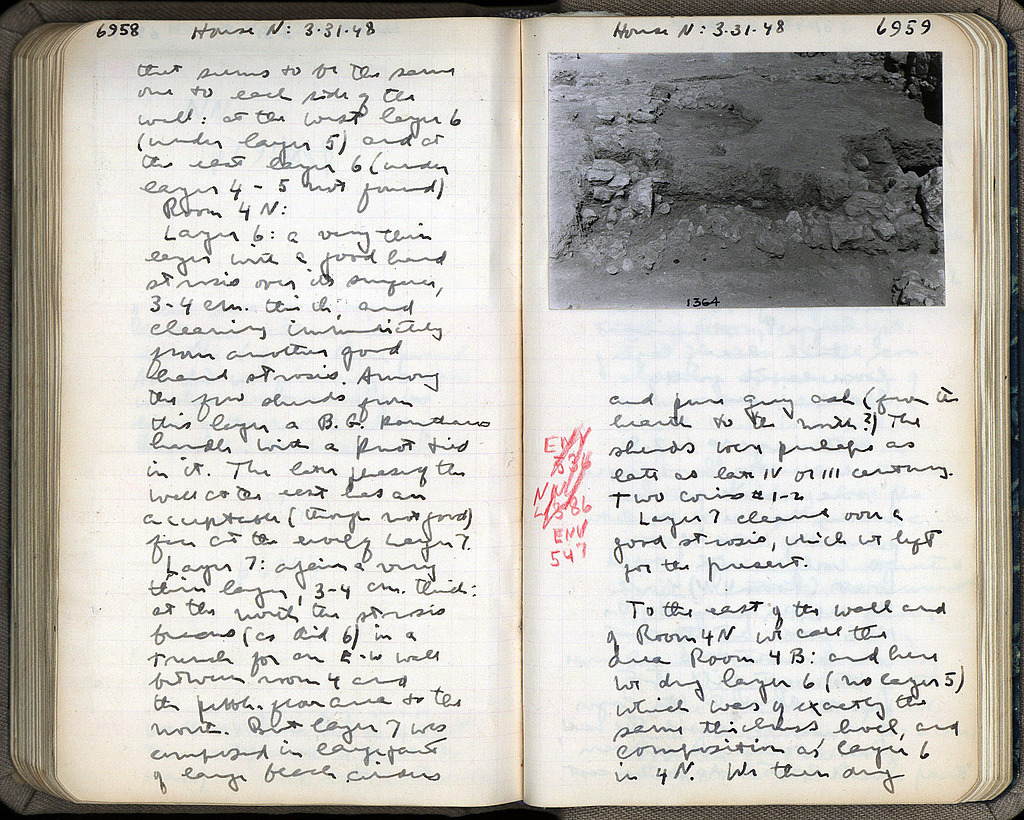 6958 House N: 3-31-48
that seems to be the same
one to each side of the
wall: at the west layer 6
(under layer 5) and at
the east layer 6 (under
layer 4 - 5 not found)
Room 4 N:
Layer 6: a very thin
layer with a good hard
strosis over its surface,
3-4 cm. thick, and
cleaning immediately
from another good
hard strosis. Among
the few sherds from
this layer a B.G. kantharos
handle with a knot tied
in it. The later phase of the
wall at the east has an
acceptable (though not good)
face at the level of Layer 7.
Layer 7: again a very
thin layer, 3-4 cm. thick:
at the north the strosis
breaks (as did 6) in a
trench for an E-W wall
between room 4 and
the pebble floor area to the
north. But layer 7 was
composed in large part
of large black
House N: 3-31-48 6959
1364
and pure grey ash (from the
hearth to the north?) The
sherds were perhaps as
late as late IV or III century.
Two coins #1-2
Layer 7 cleaned over a
good strosis, which we left
for the present.
ENV
536
NN
4386
ENV
547
To the east of the wall and
of Room 4N we call the
area Room 4B: and here
we dug layer 6 (no layer 5)
which was of exactly the
same thickness, level, and
composition as layer 6
in 4N. We then dug